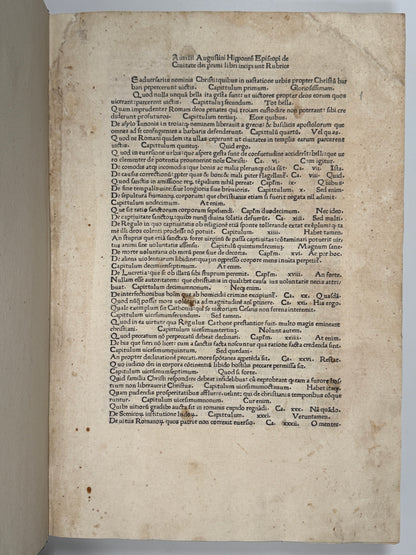 Aurelii Augustini Hipponēsis Episcopi de
Ciuitate dei primi libri incipiunt Rubrice
E aduersariis nominis Christi: quibus in uastatione urbis propter Christū bar
bari pepercerunt uictis. Capitulum primum. Gloriosissimam.
Quod nulla unquā bella ita gesta sunt: ut uictores propter deos eorum quos
uicerant: parcerent uictis. Capitulum secundum. Tot bella.
Quam imprudenter Romani deos penates qui troiam custodire non poterant: sibi cre
diderunt profuturos. Capitulum tertiū. Ecce quibus.
De asylo Iunonis in troia: quod neminem liberauit a grecis: & basilicis apostolorum que
omnes ad se confugientes a barbaris defenderunt. Capitulū quartū. Vel quas.
quod ne Romani quidem ita ullas ceperunt ciuitates: ut in templis earum parcerent
uictis. Capitulum quintū. Quid ergo.
Quod in euersione urbis: que aspere gesta sunt de consuetudine acciderit belli: que ue
ro clementer de potentia prouenerint nois Christi. Ca. vi. Cum igitur.
De comodis atq; incomodis: que bonis ac malis plerunq; cōia sūt. Ca. vii. Ista.
De causis correctionū: propter quas & boni & mali pariter flagellant. Ca. viii. Quid.
Quod sanctis in amissione rerū tēpaliū nihil pereat. Capīm. ix Quibus.
De fine temporalis uite: siue longioris siue breuioris. Capitulum x. Sed enim.
De sepultura humanorū corporum: que christianis etiam si fuerit negata nil admit.
Capitulum undecimum. At enim.
Que sit ratio sanctorum corporum sepeliendi. Capīm duodecimum. Nec ideo.
De captiuitate sanctorū: quibus nunquā diuina solatia defuerūt. Ca. xiii Sed multi.
De Regulo in quo captiuitatis ob religionē etiā sponte tolerande extat exēplum: quod ta
men illi deos colenti prodesse nō potuit. Capitulum xiiii. Habet tamen.
An stupris que etiā sanctarū forte uirginū est passa captiuitas: contaminari potuerit uir
tus animi sine uoluntatis assensu. Capitulū quintumdecimum. Magnum sane.
De morte uoluntaria ob metū pene siue dedecoris. Capīm. xvi. Ac per hoc.
De aliena uiolentia & libidine: quam in oppresso corpore mens inuita perpetit.
Capitulum decimumseptimum. At enim.
De Lucretia: que se ob illatum sibi stuprum peremit. Capīm. xviii. An forte.
Nullam esse autoritatem: que christianis in qualibet causa ius uoluntarie necis attri
buat. Capitulum decimumnonum. Neq; enim.
De interfectionibus hoīm que ab homicidii crimine excipiunt. Ca. xx. Quasdā.
Quod nūquā possit mors uoluntaria ad magnitudinē aī pertinere. Ca. xxi His ergo.
Quale exemplum sit Cathonis: qui se uictoriam Cesaris non ferens interemit.
Capitulum uicesimumsecundum. Sed tamen.
Quod in ea uirtute qua Regulus Cathone prestantior fuit: multo magis eminent
christiani. Capitulum uicesimumtertiū. Nolunt autem.
Quod peccatum nō per peccatū debeat declinari. Capīm. xxiiii. At enim.
De his que fieri nō licent: cum a sanctis facta noscunt: qua ratione facta credenda sint.
Capitulum uicesimumquintum. Sed quedam.
An propter declinationē peccati: mors spōtanea appetēda sit. Ca. xxvi. Restat.
Quo iudicio dei in corpora cōtinentiū libido hostilis peccare permissa sit.
Capitulum uicesimumseptimum. Quod si forte.
Quid familia Christi respondere debeat infidelibus: cū exprobrant q̄ eam a furore hostiū
tum non liberauerit Christus. Capitulum uicesimumoctauum. Habet itaque.
Quam pudendis prosperitatibus affluere uelint: qui de christianis temporibus cōque
runt. Capitulum uicesimumnonum. Cur enim.
Quibus uitiorū gradibus aucta sit in romanis cupido regnādi. Ca. xxx. Nā quādo.
De Scenicorū institutione ludorū. Capitulum xxxi. Veruntamen.
De uitiis Romanorū: quos patrie non correxit euersio. Ca. xxxii. O mentes.